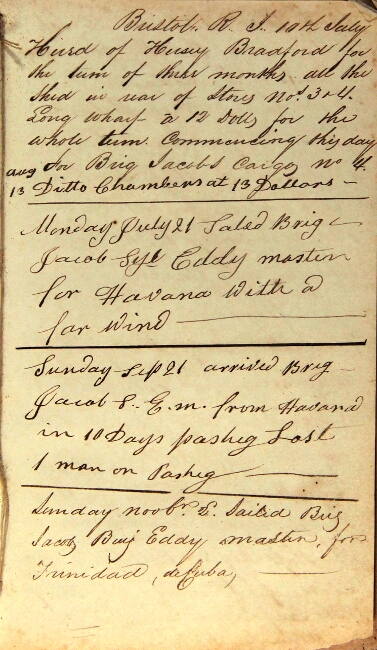 Bristol R. I. 19th July
Hierd of Hersey Bradford for
the turm of three months all the
Shed in rear of Stores No.s 3 & 4.
Long wharf a 12 Dolls for the
whole turm. Commencing this day
for Brig Jacobs Cargo, No 4.
Aug 13 Ditto Chambers at 13 Dollars —
Monday July 21 Saled Brig —
Jacob Eddy master
for Havana With a
far Wind —
Sunday Sep 21 arrived Brig —
Jacob S. E. m. from Havana
in 10 Days pasheg Lost
1 man on Pasheg —
Sunday novbr. 2. Sailed Brig
Jacob, Benj Eddy master, for
Trinidad, de Cuba, —